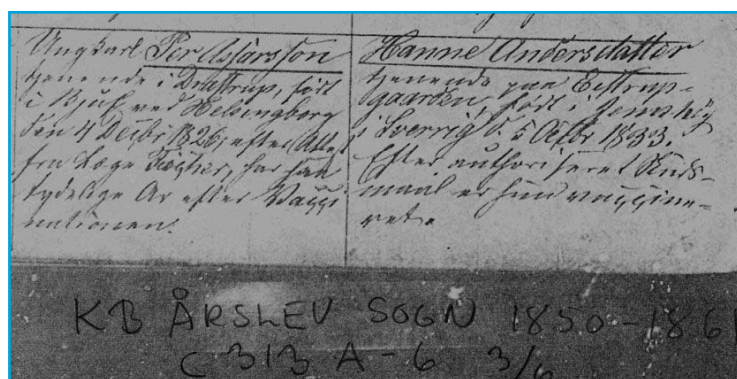 Ungkarl Per Asserson
tjenende i Drattrup, født
i Bjuf ved Helsingborg
den 4 Decbr 1826, efter Attest
fra Læge Fischer, har han
tydelige Ar efter Vacci
nationen.
Hanne Andersdatter
tjenende paa Eistrup-
gaarden, født i Jemshög
i Sverrig d. 5 1833.
Efter authoriseret Skuds-
maal er hun vaccine-
ret.
KB ÅRSLEV SOGN 1850-1861
C 313 A-6 3/6